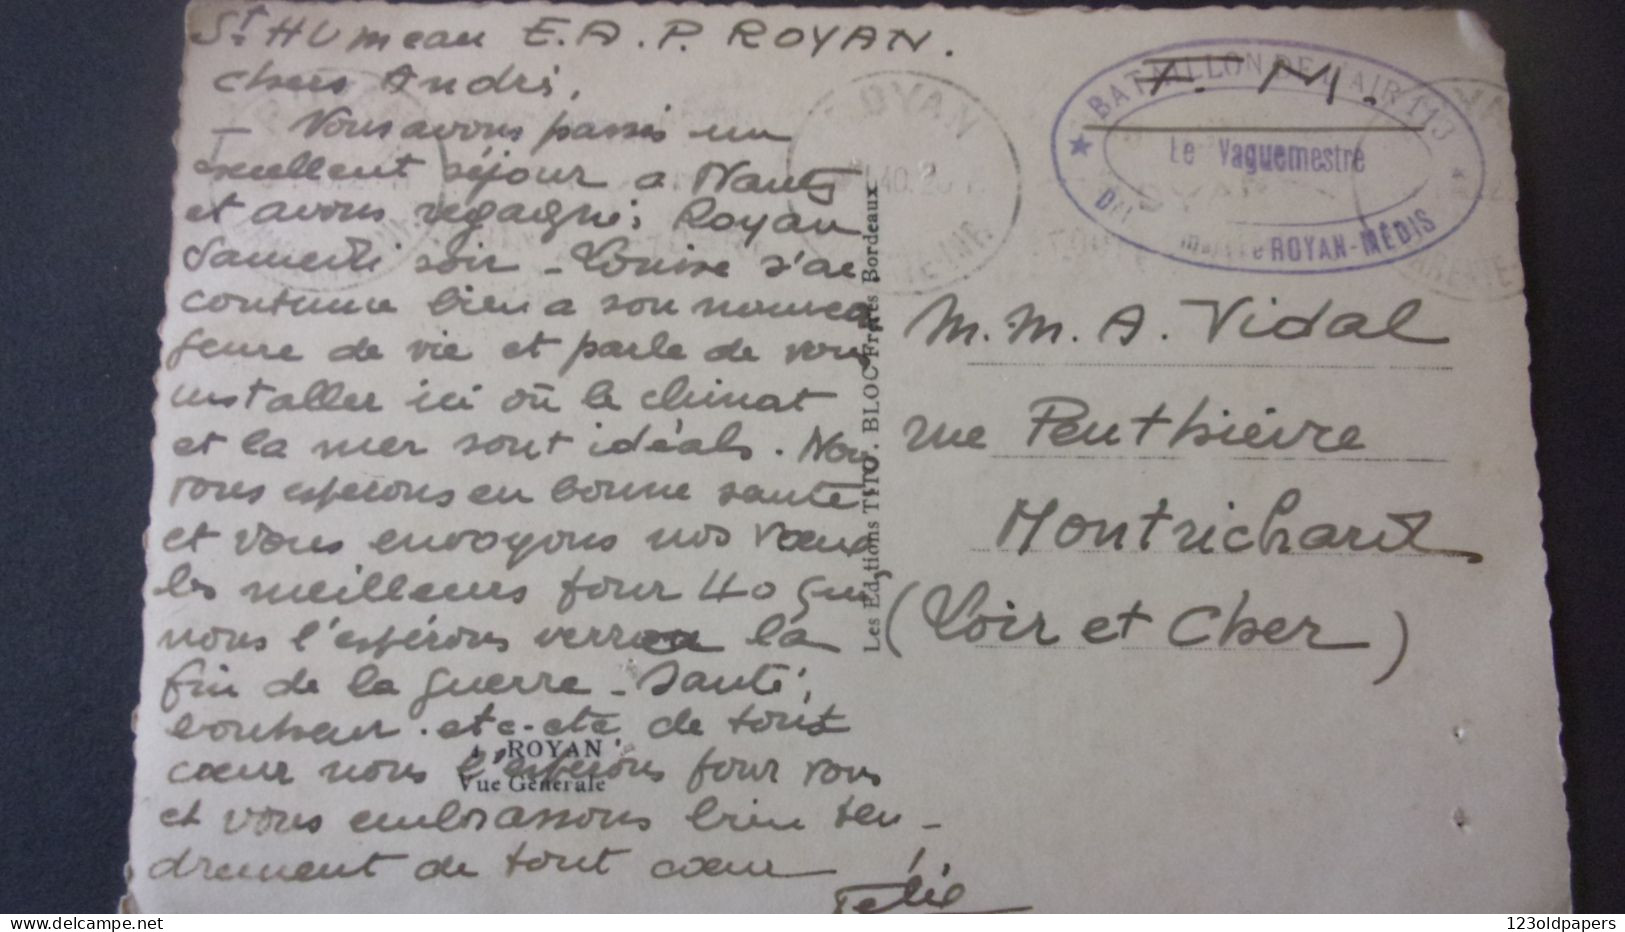 St Humeau E.A.P. ROYAN.
Chers André,
– Nous avons passés un
excellent séjour a Nantes
et avons regagnés Royan
Samedi soir – Louise s'ac
coutume bien a son nouveau
genre de vie et parle de vous
installer ici où le climat
et la mer sont idéals. Nous
vous esperons en bonne santé
et vous envoyons nos vœux
les meilleurs pour 40 que
nous l'espérons verra la
fin de la guerre – Santé,
bonheur. etc-etc de tout
cœur nous l'esperons pour vous
et vous embrassons bien ten-
drement de tout cœur
4. ROYAN
Vue Générale
Les Editions TITO. BLOC Frères Bordeaux
ROYAN
BATAILLON DE L'AIR 113
F. M.
Le Vaguemestre
ROYAN-MÉDIS
M. M. A. Vidal
rue Penthièvre
Montrichard
(Loir et Cher)
123oldpapers